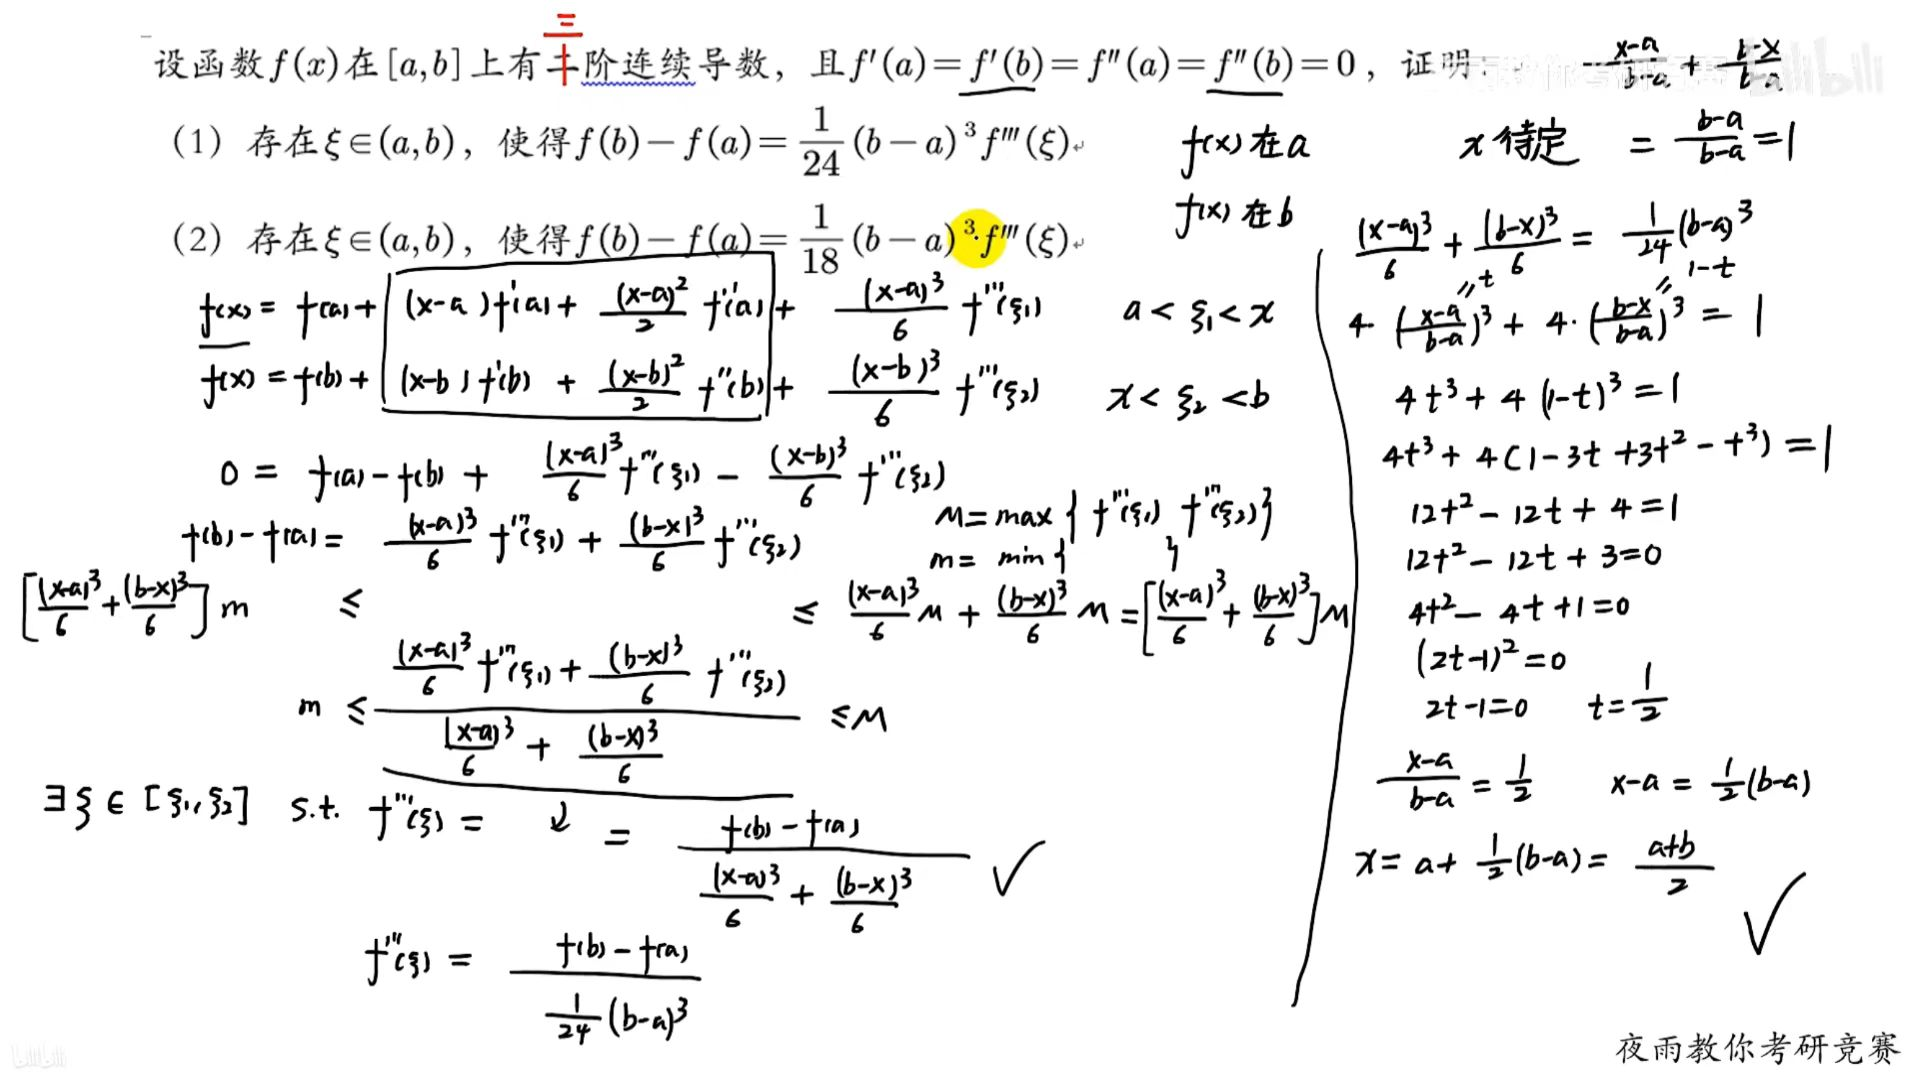 三
设函数f(x)在[a,b]上有二阶连续导数，且f′(a)=f′(b)=f″(a)=f″(b)=0，证明：
（1）存在ξ∈(a,b)，使得f(b)−f(a)=1/24 (b−a)³f‴(ξ)
（2）存在ξ∈(a,b)，使得f(b)−f(a)=1/18 (b−a)³f‴(ξ)
f(x)在a
f(x)在b
x待定
(x-a)/(b-a) + (b-x)/(b-a)
= (b-a)/(b-a) = 1
f(x) = f(a) + (x-a)f'(a) + (x-a)²/2 f''(a) + (x-a)³/6 f'''(ξ₁) a < ξ₁ < x
f(x) = f(b) + (x-b)f'(b) + (x-b)²/2 f''(b) + (x-b)³/6 f'''(ξ₂) x < ξ₂ < b
0 = f(a) - f(b) + (x-a)³/6 f'''(ξ₁) - (x-b)³/6 f'''(ξ₂)
f(b) - f(a) = (x-a)³/6 f'''(ξ₁) + (b-x)³/6 f'''(ξ₂)
M = max { f'''(ξ₁) f'''(ξ₂) }
m = min { }
[(x-a)³/6 + (b-x)³/6] m ≤ ≤ (x-a)³/6 M + (b-x)³/6 M = [(x-a)³/6 + (b-x)³/6] M
m ≤ ((x-a)³/6 f'''(ξ₁) + (b-x)³/6 f'''(ξ₂)) / ((x-a)³/6 + (b-x)³/6) ≤ M
∃ξ ∈ [ξ₁, ξ₂] s.t. f'''(ξ) = ↙ = (f(b) - f(a)) / ((x-a)³/6 + (b-x)³/6) ✓
f'''(ξ) = (f(b) - f(a)) / (1/24 (b-a)³)
(x-a)³/6 + (b-x)³/6 = 1/24 (b-a)³
=t =1-t
4·((x-a)/(b-a))³ + 4·((b-x)/(b-a))³ = 1
4t³ + 4(1-t)³ = 1
4t³ + 4(1-3t+3t²-t³) = 1
12t² - 12t + 4 = 1
12t² - 12t + 3 = 0
4t² - 4t + 1 = 0
(2t-1)² = 0
2t-1 = 0 t = 1/2
(x-a)/(b-a) = 1/2 x-a = 1/2 (b-a)
x = a + 1/2 (b-a) = (a+b)/2 ✓
bilibili
夜雨教你考研竞赛